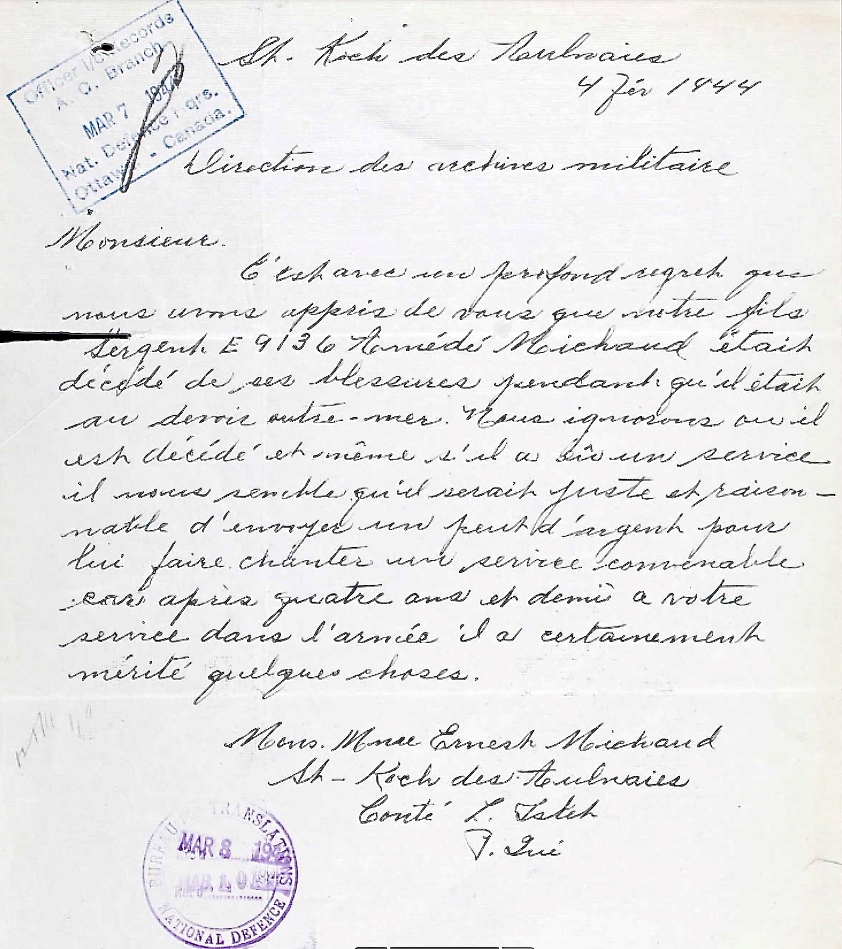 Officer I/C Records
A. G. Branch
MAR 7 194
Nat. Defence
Ottawa - Canada.
St. Roch des Aulnaies
4 Fév 1944
Direction des archives militaire
Monsieur.
C'est avec un profond regret que
nous avons appris de vous que notre fils
Sergent E 9136 Amédé Michaud était
décédé de ses blessures pendant qu'il était
au devoir outre-mer. Nous ignorons ou il
est décédé et même s'il a eû un service
il nous semble qu'il serait juste et raison-
nable d'envoyer un peut d'argent pour
lui faire chanter un service convenable
car après quatre ans et demi a votre
service dans l'armée il a certainement
mérité quelques choses.
Mons. Mme Ernest Michaud
St-Roch des Aulnaies
Conté L. Islet
P. Qué
BUREAU TRANSLATIONS
MAR 8 194
MAR 10 194
NATIONAL DEFENCE